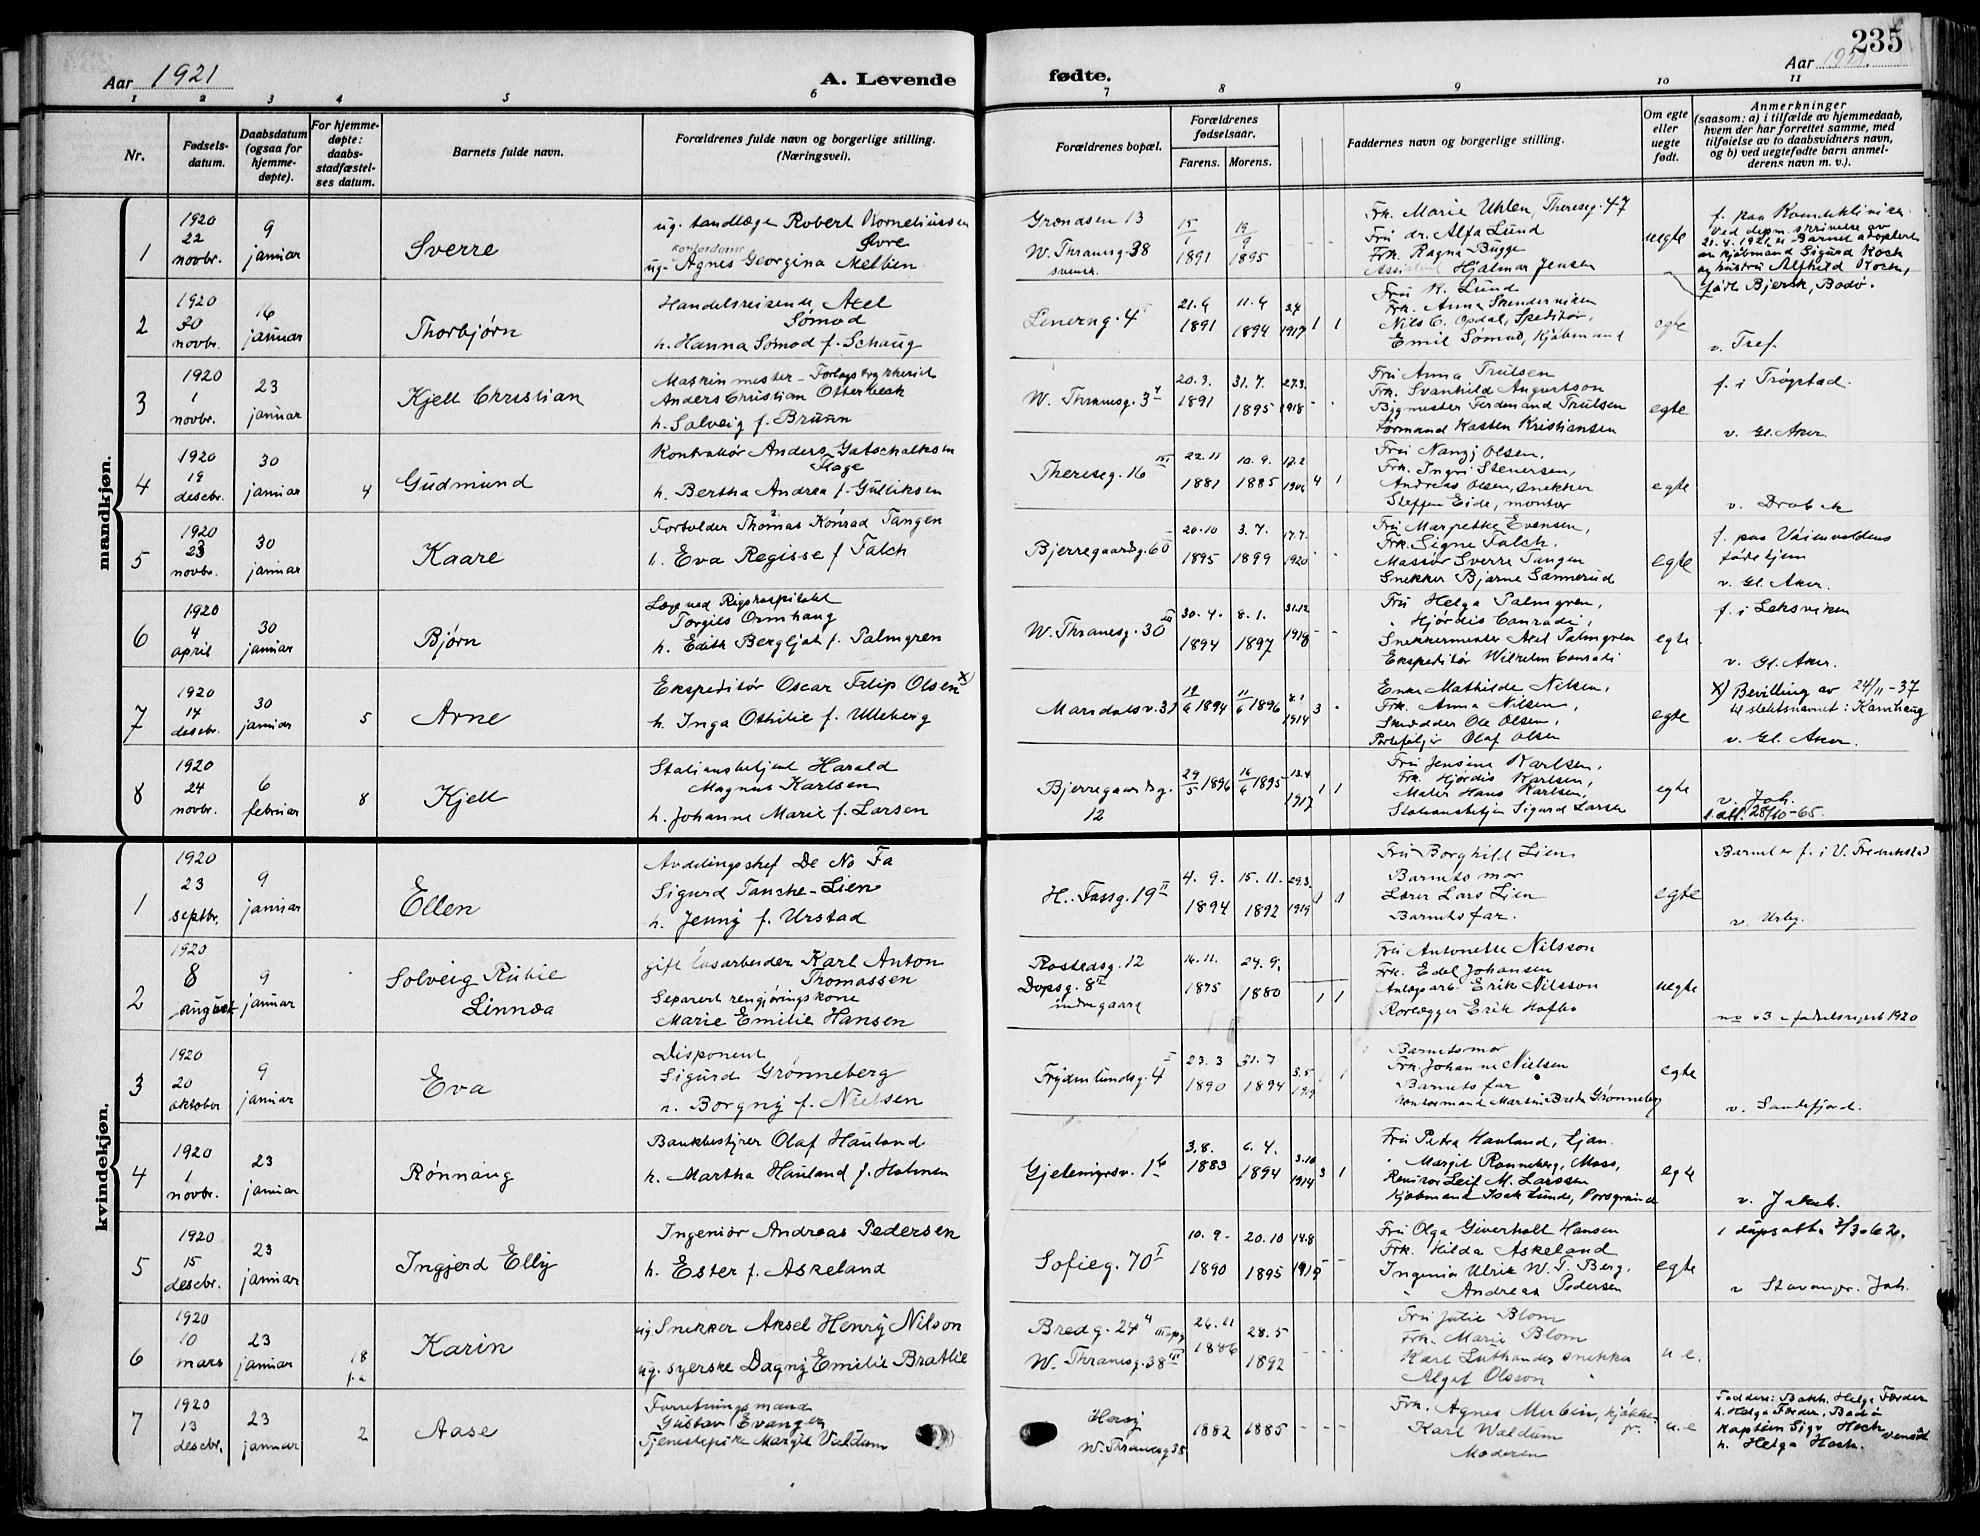 235
Aar 1921
A. Levende
fødte.
Aar 1921.
1 2 3 4 5 6 7 8 9 10 11
Nr.
Fødsels-
datum.
Daabsdatum
(ogsaa for
hjemme-
døpte).
For hjemme-
døpte:
daabs-
stadfæstel-
ses datum.
Barnets fulde navn.
Forældrenes fulde navn og borgerlige stilling.
(Næringsvei).
Forældrenes bopæl.
Forældrenes
fødselsaar.
Farens. Morens.
Faddernes navn og borgerlige stilling.
Om egte
eller
uegte
født.
Anmerkninger
(saasom: a) i tilfælde av hjemmedaab,
hvem der har forrettet samme, med
tilføielse av to daabsvidners navn,
og b) ved uegtefødte barn anmel-
derens navn m. v.).
mandkjøn.
1
1920
22
novbr.
9
januar
Sverre
ug. tandlæge Robert Korneliussen
ug. Agnes Georgina Melbien
Grændsen 13
W. Thranesg. 38
1891
19/9
1895
Frk. Marie Uhlen, Thereseg. 47
Fru dr. Alfa Lund
Frk. Ragna Bugge
Hjalmar Jensen
uegte
f. paa Kvindekliniken
Ved depm. skrivelse av
21.4.1921 er Barnet adoptert
av kjøbmand Sigurd Koch
og hustru Alfhild Koch,
født Bjersk, Bodø.
2
1920
30
novbr.
16
januar
Thorbjørn
Handelsreisende Axel
Sømod
h. Hanna Sømod f. Schaug
21.4
1891
11.4
1894
1917
1 1
Fru K. Lund
Frk. Anna Skenderviken
Nils C. Opdal, Speditør,
Emil Sømod, Kjøbmand
egte
v. Tref.
3
1920
1
novbr.
23
januar
Kjell Christian
Maskinmester
Anders Christian Otterbeck
h. Solveig f. Bruun
W. Thranesg. 3
20.3.
1891
31.7.
1895
27.3.
1918
Fru Anna Trulsen
Frk. Svanhild Angortson
Bygmester Ferdinand Trulsen
Formand Kasten Kristiansen
egte
f. i Trøgstad.
v. Gl. Aker.
4
1920
19
desebr.
30
januar
4
Gudmund
Kontrollør Anders Gotschalksen
Flage
h. Bertha Andrea f. Gulliksen
Thereseg. 16 III
22.11
1881
10.9.
1885
17.2
4 1
Fru Nanzj Olsen,
Frk. Ingri Stenersen,
Andreas Olsen, snekker
Steffen Eide, montør
egte
v. Drøbak
5
1920
23
novbr.
30
januar
Kaare
Forvolder Thomas Konrad Tangen
h. Eva Regisse f. Falch
Bjerregaardsg. 60 I
20.10
1895
3.7.
1899
17.7.
1920
Fru Margrethe Evensen,
Frk. Signe Falch.
Massør Sverre Tangen
Snekker Bjarne Sannerud
egte
f. paa Vaienvoldens
fødehjem
v. Gl. Aker.
6
1920
4
april
30
januar
Bjørn
Læge ved Rigshospitalet
Torgils Ormhaug
h. Edith Bergljot f. Palmgren
W. Thranesg. 30 III
30.4.
1894
8.1.
1897
31.12
1918
Fru Helga Palmgren,
" Hjørdis Conradi,
Snekkermester Axel Palmgren
Ekspeditør Wilhelm Conradi
egte
f. i Leksviken
v. Gl. Aker.
7
1920
14
desebr.
30
januar
5
Arne
Ekspeditør Oscar Filip Olsen x)
h. Inga Othilie f. Ulleberg
Marsdalsv. 31
19/6 1894
11/6 1896
1914
3
Enke Mathilde Nilsen,
Frk. Anna Nilsen,
Skrædder Ole Olsen,
Portefølje Olaf Olsen
egte
x) Bevilling av 24/11-37
til slektsnavnet: Kamhaug
v. Gl. Aker.
8
1920
24
novbr.
6
februar
8
Kjell
Stationsbetjent Harald
Magnus Karlsen
h. Johanne Marie f. Larsen
Bjerregaardsg.
12
29/5 1896
16/6 1895
13.4
1917
1 1
Fru Jensine Karlsen,
Frk. Hjørdis Karlsen,
Maler Hans Karlsen,
Stationsbetjen Sigurd Larsen
egte
v. Joh.
1. att. 28/10-65.
kvindekjøn.
1
1920
23
septbr.
9
januar
Ellen
Avdelingschef De No Fa
Sigurd Tanche-Lien
h. Jenny f. Urstad
H. Fossg. 19 II
4.9.
1894
15.11.
1892
29.3.
1919
1 1
Fru Borghild Lien
Barnets mor
Lærer Lars Lien
Barnets far.
egte
Barnet er f. i V. Fredrikstad
v. Urbg.
2
1920
8
august
9
januar
Solveig Rubie
Linnea
gift løsarbeider Karl Anton
Thomassen
Separert rengjøringskone
Marie Emilie Hansen
Rostedsg. 12
Dopsg. 8 II
indregaard
16.11.
1875
24.9.
1880
1 1
Fru Antonette Nilsson
Frk. Edel Johansen
Anlægsarb. Erik Nilsson
Rørlægger Erik Hofbo
uegte
no 03 fødselsregist 1920
3
1920
20
oktober
9
januar
Eva
Disponent
Sigurd Grønneberg
h. Borgny f. Nielsen
Frydenlundsg. 4 I
23.3
1890
31.7
1894
5.5
1919
1
Barnets mor
Frk. Johanne Nielsen
Barnets far
Kontormand Martin Brede Grønneberg
egte
v. Sandefjord.
4
1920
1
novbr.
23
januar
Rønnaug
Bankbestyrer Olaf Hauland
h. Martha Hauland f. Holmen
3.8.
1883
6.4.
1894
3.10
1914
3 1
Fru Petra Hauland, Ljan.
" Margit Ronneberg, Moss,
Revisor Leif M. Larssen
Kjøbmand Isak Lunde, Porsgrund
egte
v. Jakob.
5
1920
15
desebr.
23
januar
Ingjerd Elly
Ingeniør Andreas Pedersen
h. Ester f. Askeland
Sofieg. 70 I
10.9.
1890
20.10
1895
14.8
1919
Fru Olga Giverholt Hansen
Frk. Hilda Askeland
Ingeniør Ulrik W. T. Berg,
" Andreas Pedersen
egte
1 dåpsatt. 2/3.062.
v Stavanger. Joh.
6
1920
10
mars
23
januar
18
Karin
ug. Snekker Aksel Henry Nilson
ug. syerske Dagny Emilie Bratlie
Bredg. 24
W. Thranesg. 38 III
26.11
1886
28.5
1892
Fru Julie Blom
Frk. Marie Blom
Karl Luthander snekker
Algot Olsson
u.e.
7
1920
13
desebr.
23
januar
2
Aase
Forretningsmand
Gustav Evanger
Tjenestepike Margit Valdum
Herøy
W. Thranesg 38
1882
1885
Frk. Agnes Melbin,
Karl Waldum
Moderen
u.e
Faddere: Bokh. Helge Førder
h. Helga Førder, Bodø
Kaptein Sigv. Hoch
h. Helga Hoch.